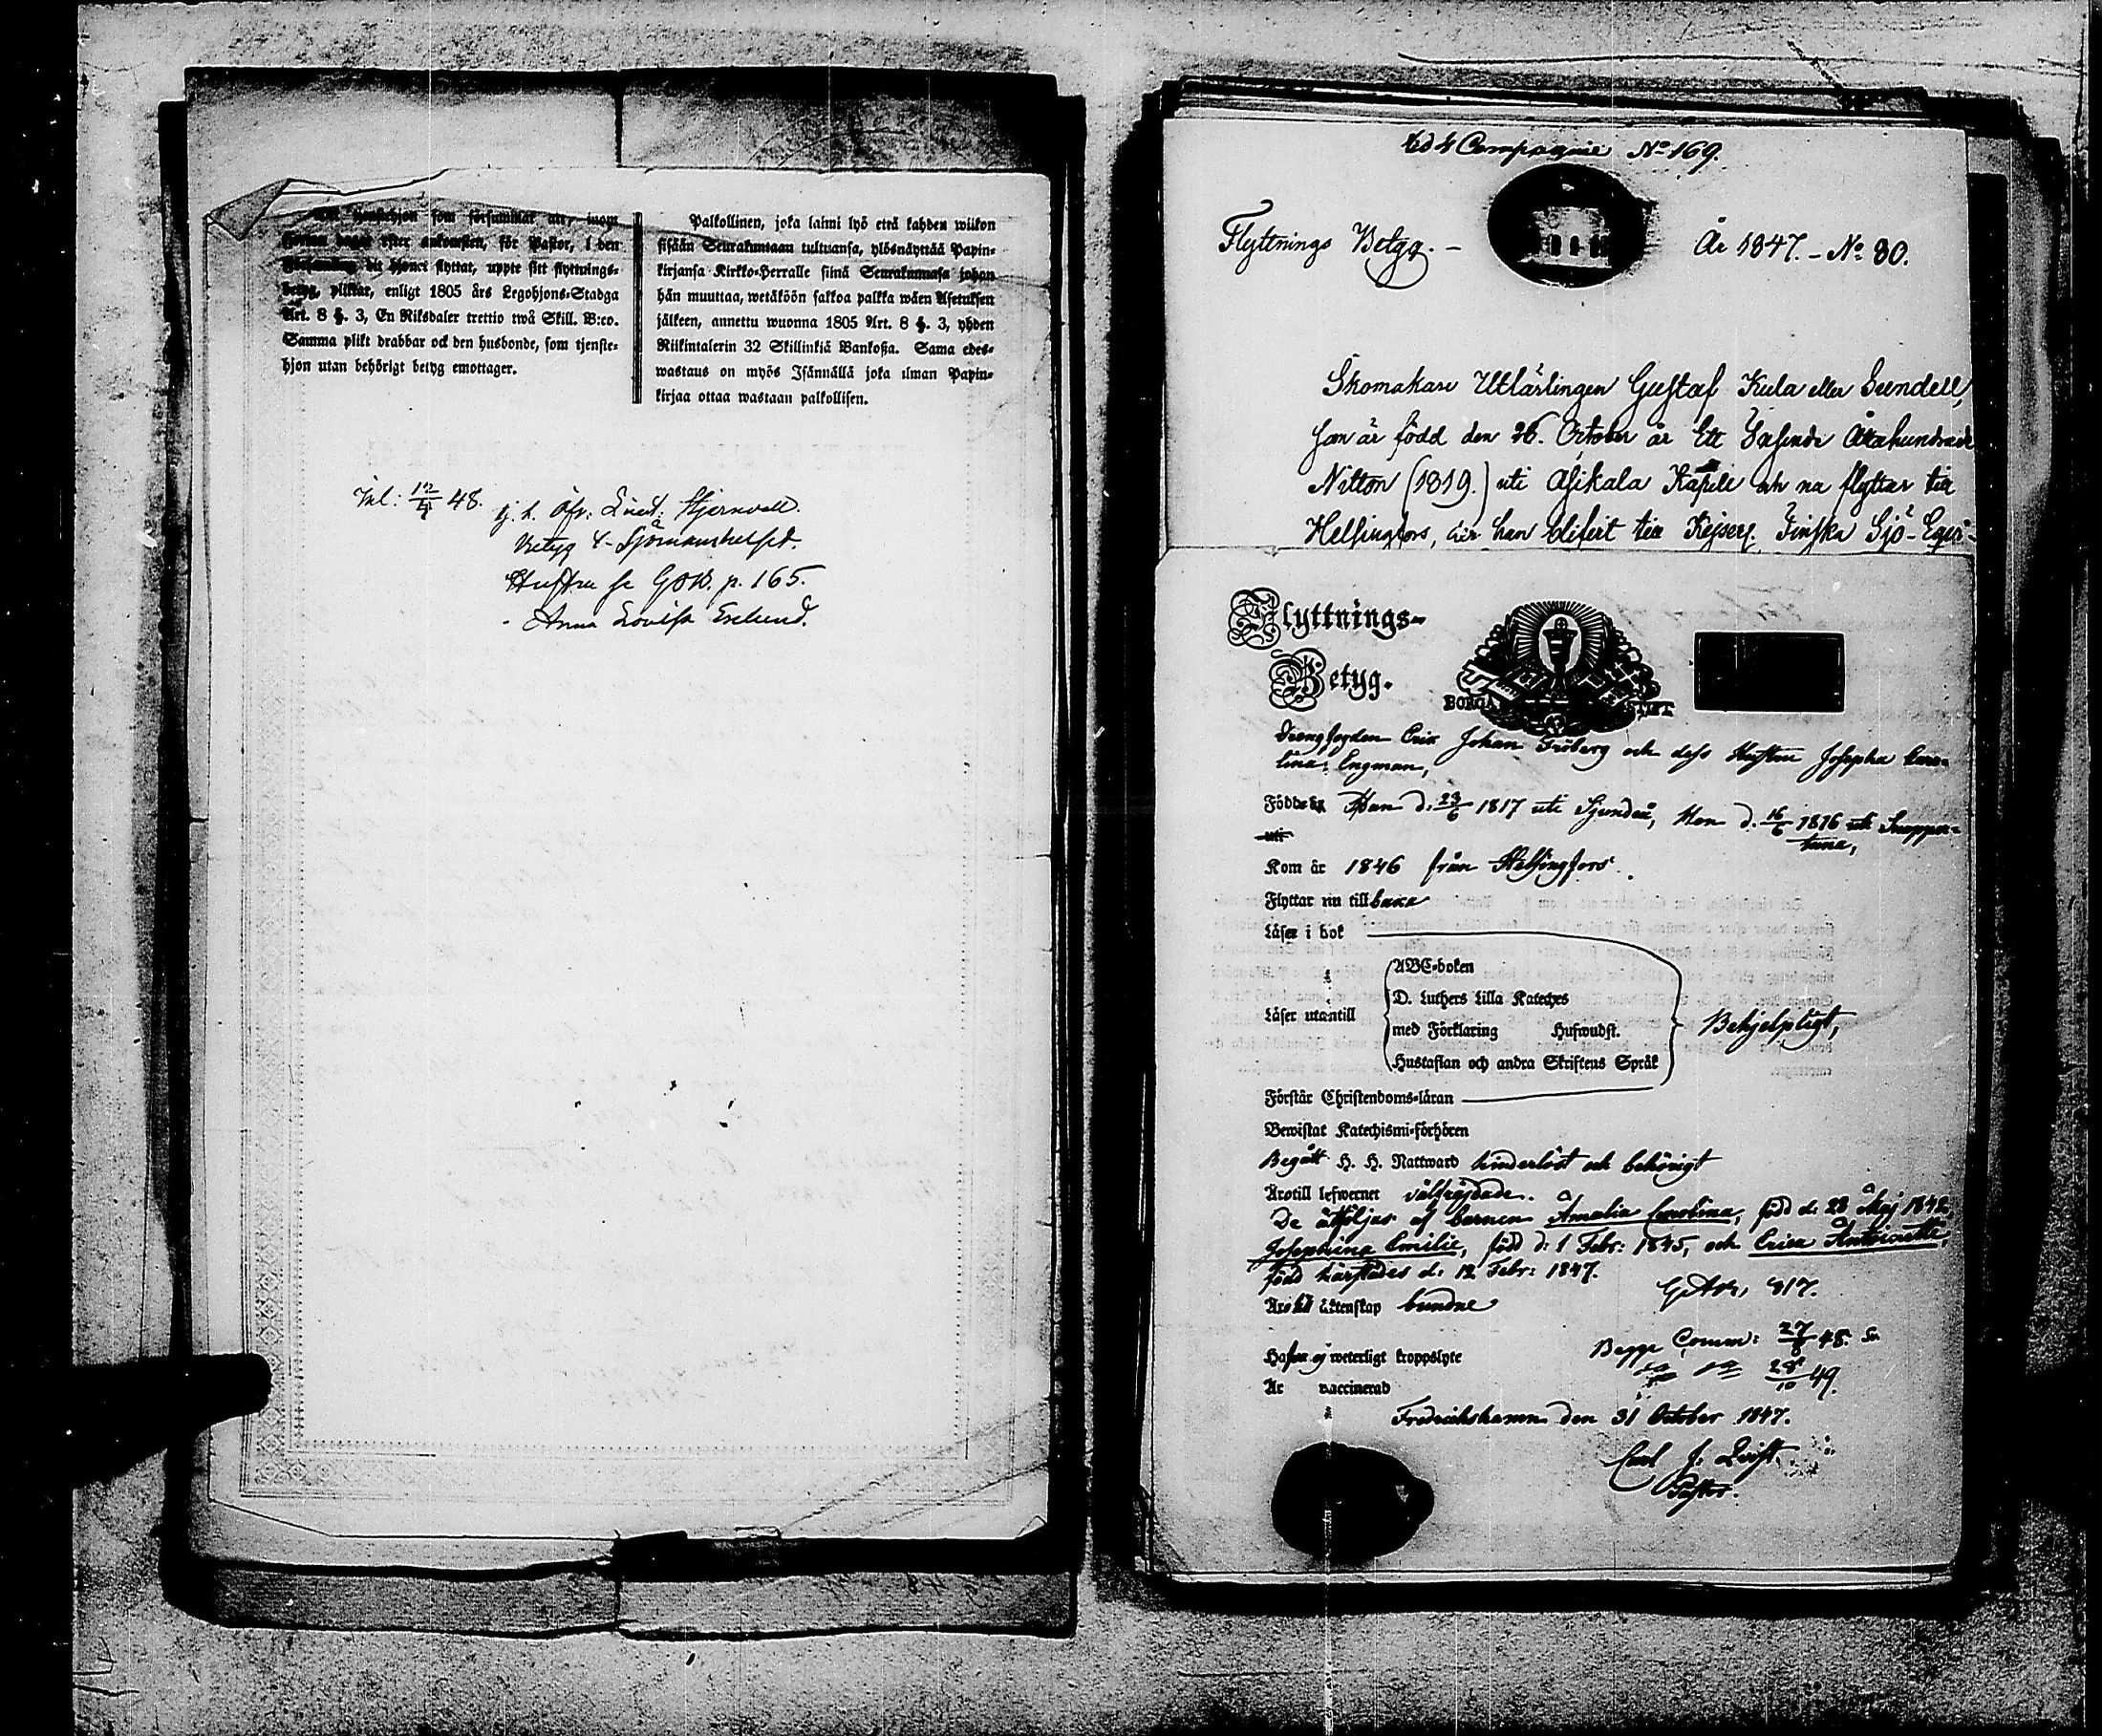 som försummat att, inom
dagar efter ankomsten, för Pastor, i den
Församling dit hjonet flyttat, uppte sitt flyttnings-
betyg, pliktar, enligt 1805 års Legohjons-Stadga
Art. 8 §. 3, En Riksdaler trettio twå Skill. B:co.
Samma plikt drabbar ock den husbonde, som tjenste-
hjon utan behörigt betyg emottager.
Palkollinen, joka laimi lyö että kahden wiikon
sisään Seurakuntaan tultuansa, ylösnäyttää Papin-
kirjansa Kirkko-Herralle siinä Seurakunnasa johon
hän muuttaa, wetäköön sakkoa palkka wäen Asetuksen
jälkeen, annettu wuonna 1805 Art. 8 §. 3, yhden
Riikintalerin 32 Skillinkiä Bankossa. Sama edes-
wastaus on myös Isännällä joka ilman Papin-
kirjaa ottaa wastaan palkollisen.
48.
Stjernvall.
Betyg
Hustru se p. 165.
Anna Lovisa
4 Compagnie No 169.
Flyttnings Betyg. – År 1847. – No 80.
Skomakare Utlärlingen Gustaf Kula eller Sundell,
som är född den 26. October år Ett Tusende Åttahundrade
Nitton (1819.) uti Asikala Kapell och nu flyttar till
Helsingfors, där han blifvit till Kejserl. Finska Sjö-Equi-
Flyttnings-
Betyg.
BORGÅ STIFT
Drengfogden Eric Johan Fröberg och dess Hustru Josepha Caro-
lina Engman,
Födde Han d: 23/6 1817 uti Sjundeå, Hon d. 16/6 1816 uti Snapper-
uti tuna,
Kom år 1846 från Helsingfors.
Flyttar nu tillbaka
Läser i bok
ABC-boken
D. Luthers Lilla Kateches
Läser utantill
med Förklaring Hufwudst.
Behjelpligt,
Hustaflan och andra Skriftens Språk
Förstår Christendoms-läran
Bewistat Katechismi-förhören
Begått H. H. Nattward hinderlöst och behörigt
Äro till lefwernet välfrejdade.
De åtföljas af barnen Amalia Carolina, född d: 28 Maj 1842,
Josephina Emilie, född d: 1 Febr: 1845, och Erica Antoinette,
född härstädes d: 12 Febr: 1847.
817.
Äro till äktenskap bundne
Begge Comm: 48.
Hafva ej weterligt kroppslyte
49.
Är vaccinerad
Fredrikshamn den 31 October 1847.
Carl J.
Pastor.